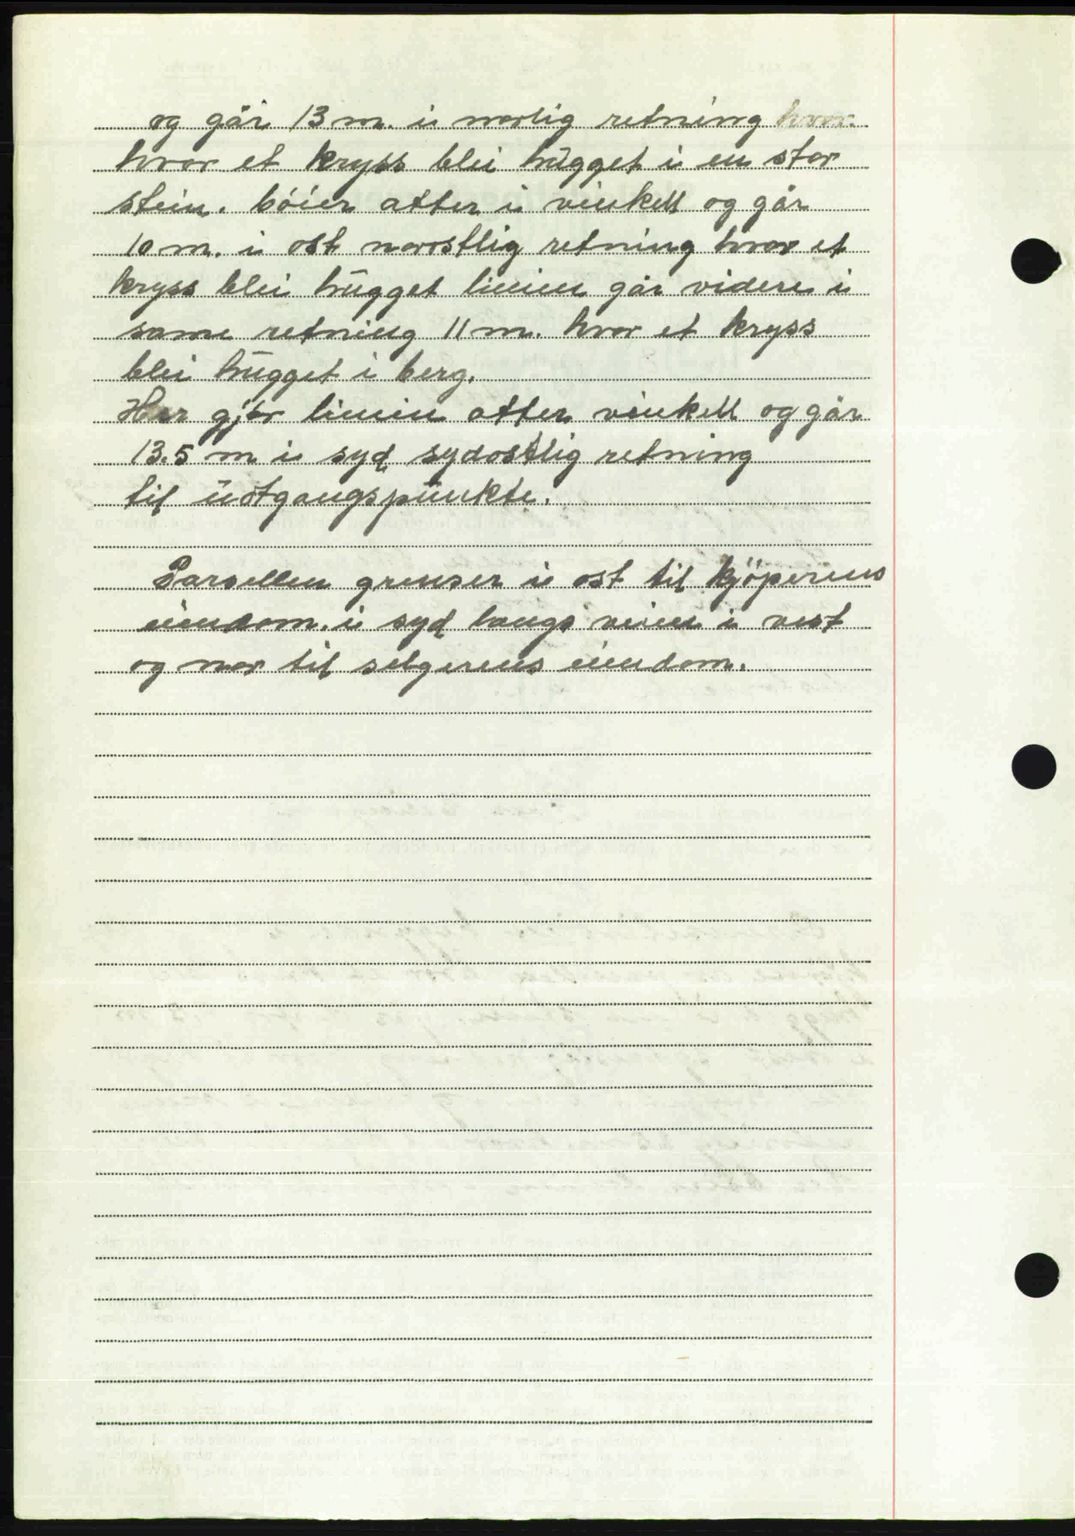 og går 13 m. i norlig retning hvor
hvor et kryss blei hugget i en stor
stein. böier atter i vinkell og går
10 m. i ost norostlig retning hvor et
kryss blei hugget linien går videre i
same retning 11 m. hvor et kryss
blei hugget i berg.
Her gjör linien atter vinkell og går
13.5 m i syd sydostlig retning
til utgangspunkte.
Parsellen grenser i ost til kjöperens
eiendom. i syd langs veien i vest
og nor til selgerens eiendom.